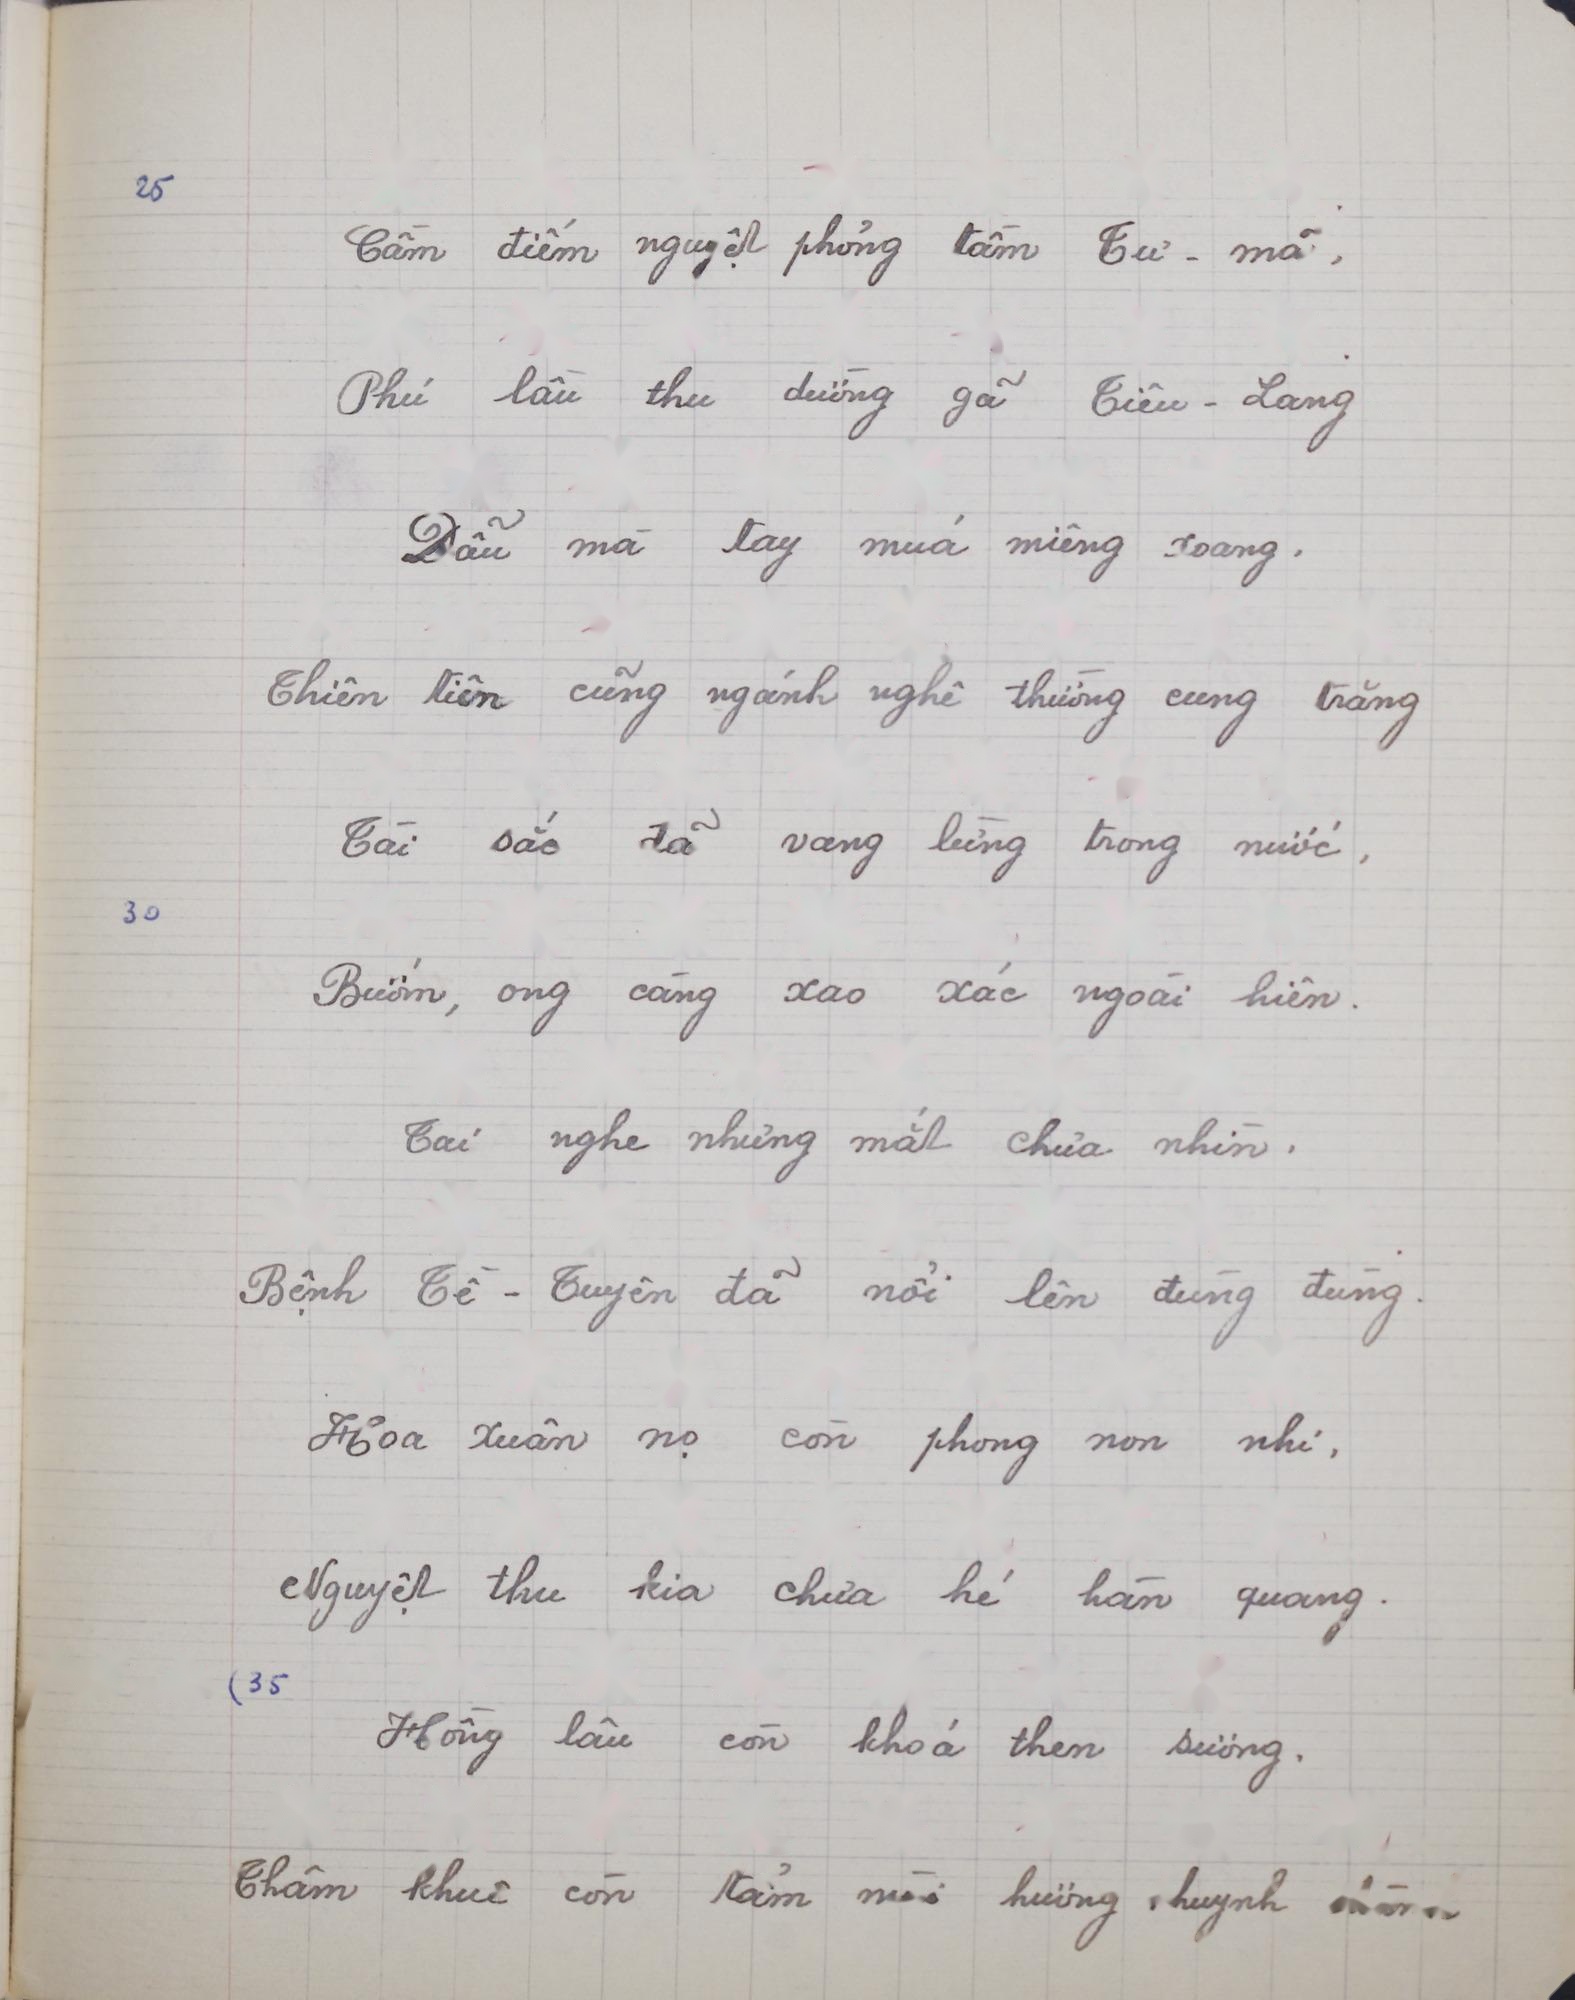 25
Cầm điếm nguyệt phỏng tầm Tư - mã,
Phú lầu thu dường gã Tiêu - Lang
Dẫu mà tay muá miệng xoang.
Thiên tiên cũng ngảnh nghê thường cung trăng
Tài sắc đã vang lừng trong nước,
30
Bướm, ong càng xao xác ngoài hiên.
Tai nghe nhưng mắt chưa nhìn.
Bệnh Tề - Tuyên đã nổi lên đùng đùng.
Hoa xuân nọ còn phong non nhí,
Nguyệt thu kia chưa hé hàn quang.
(35
Hồng lâu còn khoá then sương.
Thâm khuê còn tảm mùi hương huynh